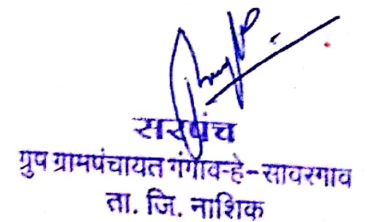 सरपंच
ग्रुप ग्रामपंचायत गंगाव-हे-सावरगाव
ता. जि. नाशिक